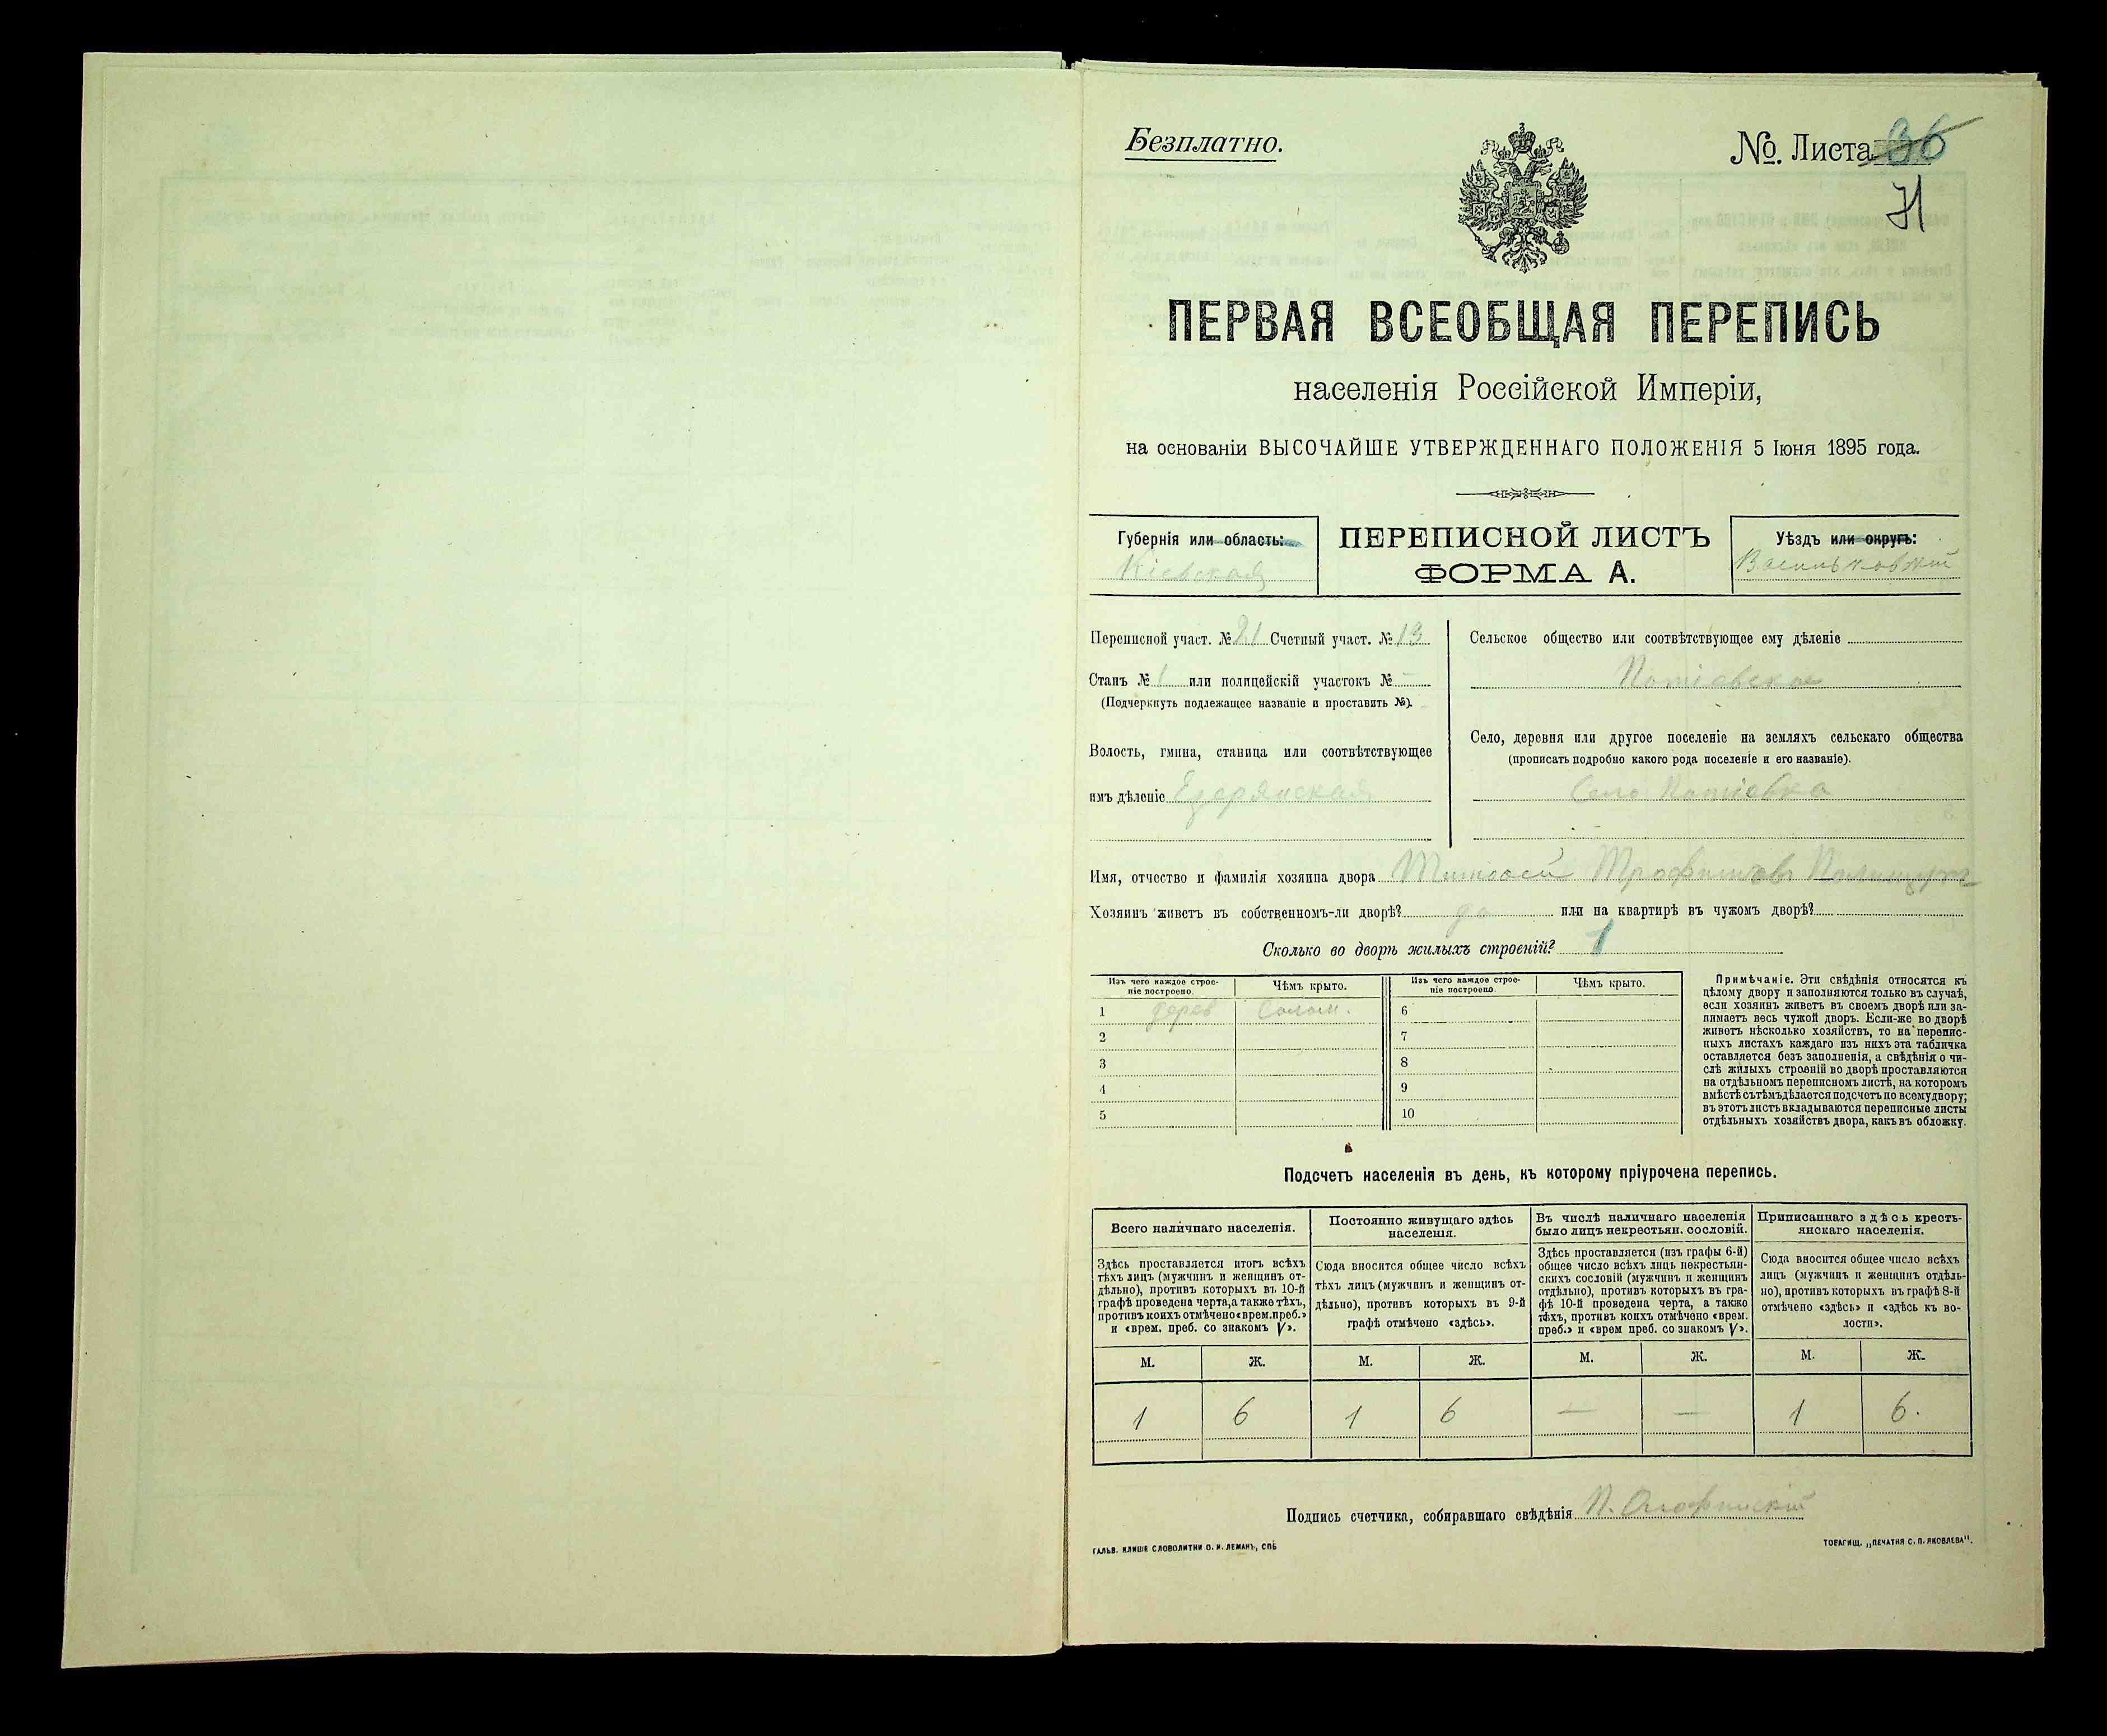 Безплатно.
№. Листа 36
71
ПЕРВАЯ ВСЕОБЩАЯ ПЕРЕПИСЬ
населенія Россійской Имперіи,
на основаніи ВЫСОЧАЙШЕ УТВЕРЖДЕННАГО ПОЛОЖЕНІЯ 5 Іюня 1895 года.
Губернія или область:
Кіевская
ПЕРЕПИСНОЙ ЛИСТЪ
ФОРМА А.
Уѣздъ или округъ:
Васильковскій
Переписной участ. № 21 Счетный участ. № 13
Станъ № 1 или полицейскій участокъ № —
(Подчеркнуть подлежащее названіе и проставить №).
Волость, гмина, станица или соотвѣтствующее
имъ дѣленіе Езерянская
Сельское общество или соотвѣтствующее ему дѣленіе
Потіевское
Село, деревня или другое поселеніе на земляхъ сельскаго общества
(прописать подробно какого рода поселеніе и его названіе).
Село Потіевка
Имя, отчество и фамилія хозяина двора Тимофей Трофимовъ
Хозяинъ живетъ въ собственномъ-ли дворѣ? да или на квартирѣ въ чужомъ дворѣ?
Сколько во дворѣ жилыхъ строеній? 1
Изъ чего каждое строе-
ніе построено.
Чѣмъ крыто.
Изъ чего каждое строе-
ніе построено.
Чѣмъ крыто.
1 дерев солом. 6
2 7
3 8
4 9
5 10
Примѣчаніе. Эти свѣдѣнія относятся къ
цѣлому двору и заполняются только въ случаѣ,
если хозяинъ живетъ въ своемъ дворѣ или за-
нимаетъ весь чужой дворъ. Если-же во дворѣ
живетъ нѣсколько хозяйствъ, то на перепис-
ныхъ листахъ каждаго изъ нихъ эта табличка
оставляется безъ заполненія, а свѣдѣнія о чи-
слѣ жилыхъ строеній во дворѣ проставляются
на отдѣльномъ переписномъ листѣ, на которомъ
вмѣстѣ сътѣмъ дѣлается подсчетъ по всему двору;
въ этотъ листъ вкладываются переписные листы
отдѣльныхъ хозяйствъ двора, какъ въ обложку.
Подсчетъ населенія въ день, къ которому пріурочена перепись.
Всего наличнаго населенія.
Здѣсь проставляется итогъ всѣхъ
тѣхъ лицъ (мужчинъ и женщинъ от-
дѣльно), противъ которыхъ въ 10-й
графѣ проведена черта, а также тѣхъ,
противъ коихъ отмѣчено «врем. преб.»
и «врем. преб. со знакомъ V».
Постоянно живущаго здѣсь
населенія.
Сюда вносится общее число всѣхъ
тѣхъ лицъ (мужчинъ и женщинъ от-
дѣльно), противъ которыхъ въ 9-й
графѣ отмѣчено «здѣсь».
Въ числѣ наличнаго населенія
было лицъ некрестьян. сословій.
Здѣсь проставляется (изъ графы 6-й)
общее число всѣхъ лицъ некрестьян-
скихъ сословій (мужчинъ и женщинъ
отдѣльно), противъ которыхъ въ гра-
фѣ 10-й проведена черта, а также
тѣхъ, противъ коихъ отмѣчено «врем.
преб.» и «врем преб. со знакомъ V».
Приписаннаго здѣсь кресть-
янскаго населенія.
Сюда вносится общее число всѣхъ
лицъ (мужчинъ и женщинъ отдѣль-
но), противъ которыхъ въ графѣ 8-й
отмѣчено «здѣсь» и «здѣсь къ во-
лости».
М. Ж. М. Ж. М. Ж. М. Ж.
1 6 1 6 — — 1 6.
Подпись счетчика, собиравшаго свѣдѣнія П.
ГАЛЬВ. КЛИШЕ СЛОВОЛИТНИ О. И. ЛЕМАНЪ, СПБ
ТОВАРИЩ. „ПЕЧАТНЯ С. П. ЯКОВЛЕВА".